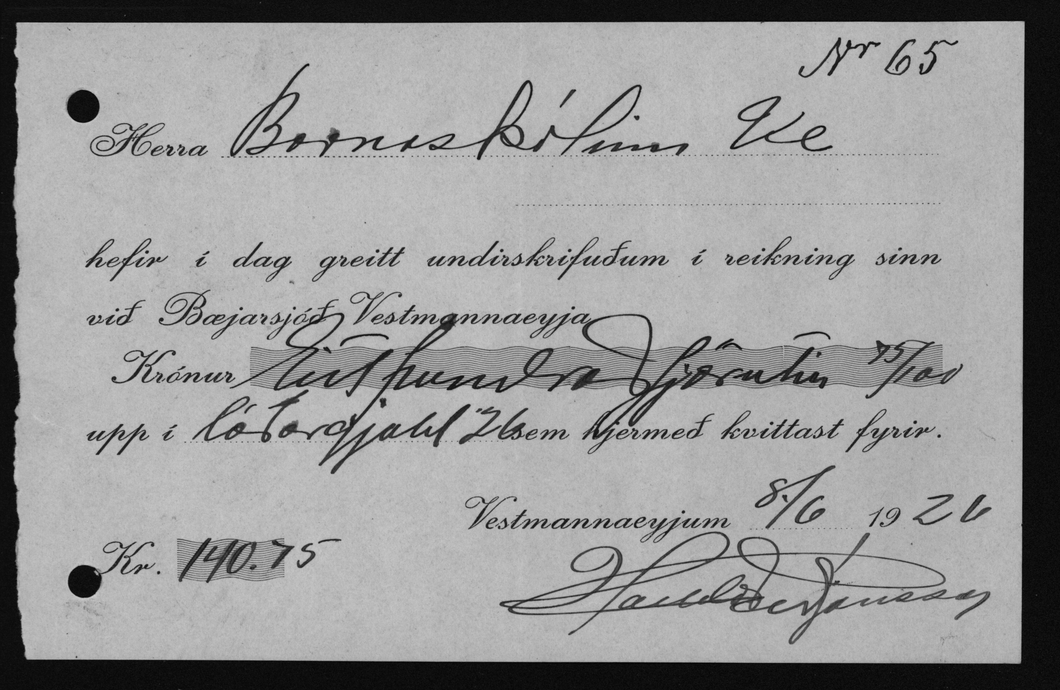 Nr 65
Herra Barnaskólinn Ve
hefir í dag greitt undirskrifuðum í reikning sinn
við Bæjarsjóð Vestmannaeyja
Krónur Eitt hundrað fjörutíu 75/100
upp í lóðargjald '26 sem hjermeð kvittast fyrir.
Vestmannaeyjum 8/6 1926
Kr. 140.75